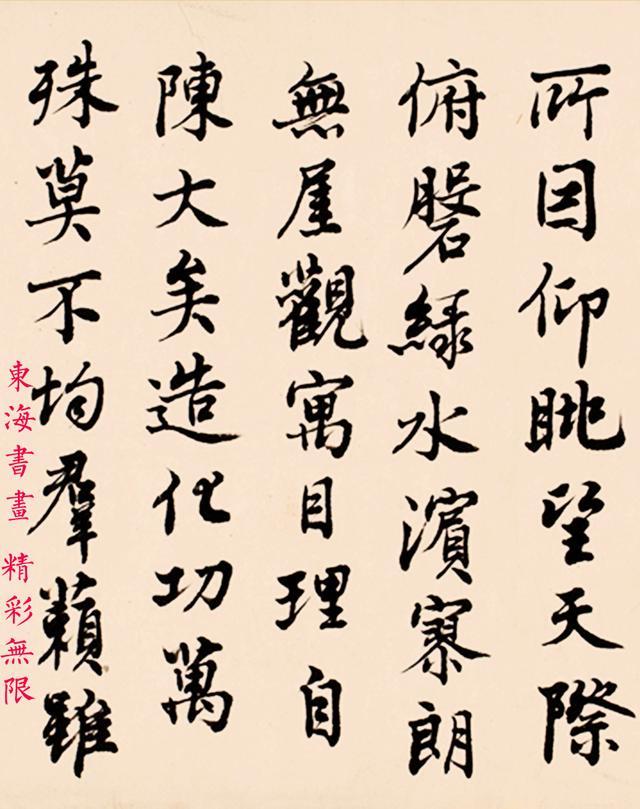 所因仰眺望天際
俯磐綠水濱寥朗
無崖觀寓目理自
陳大矣造化功萬
殊莫不均群籟雖
東海書畫 精彩無限